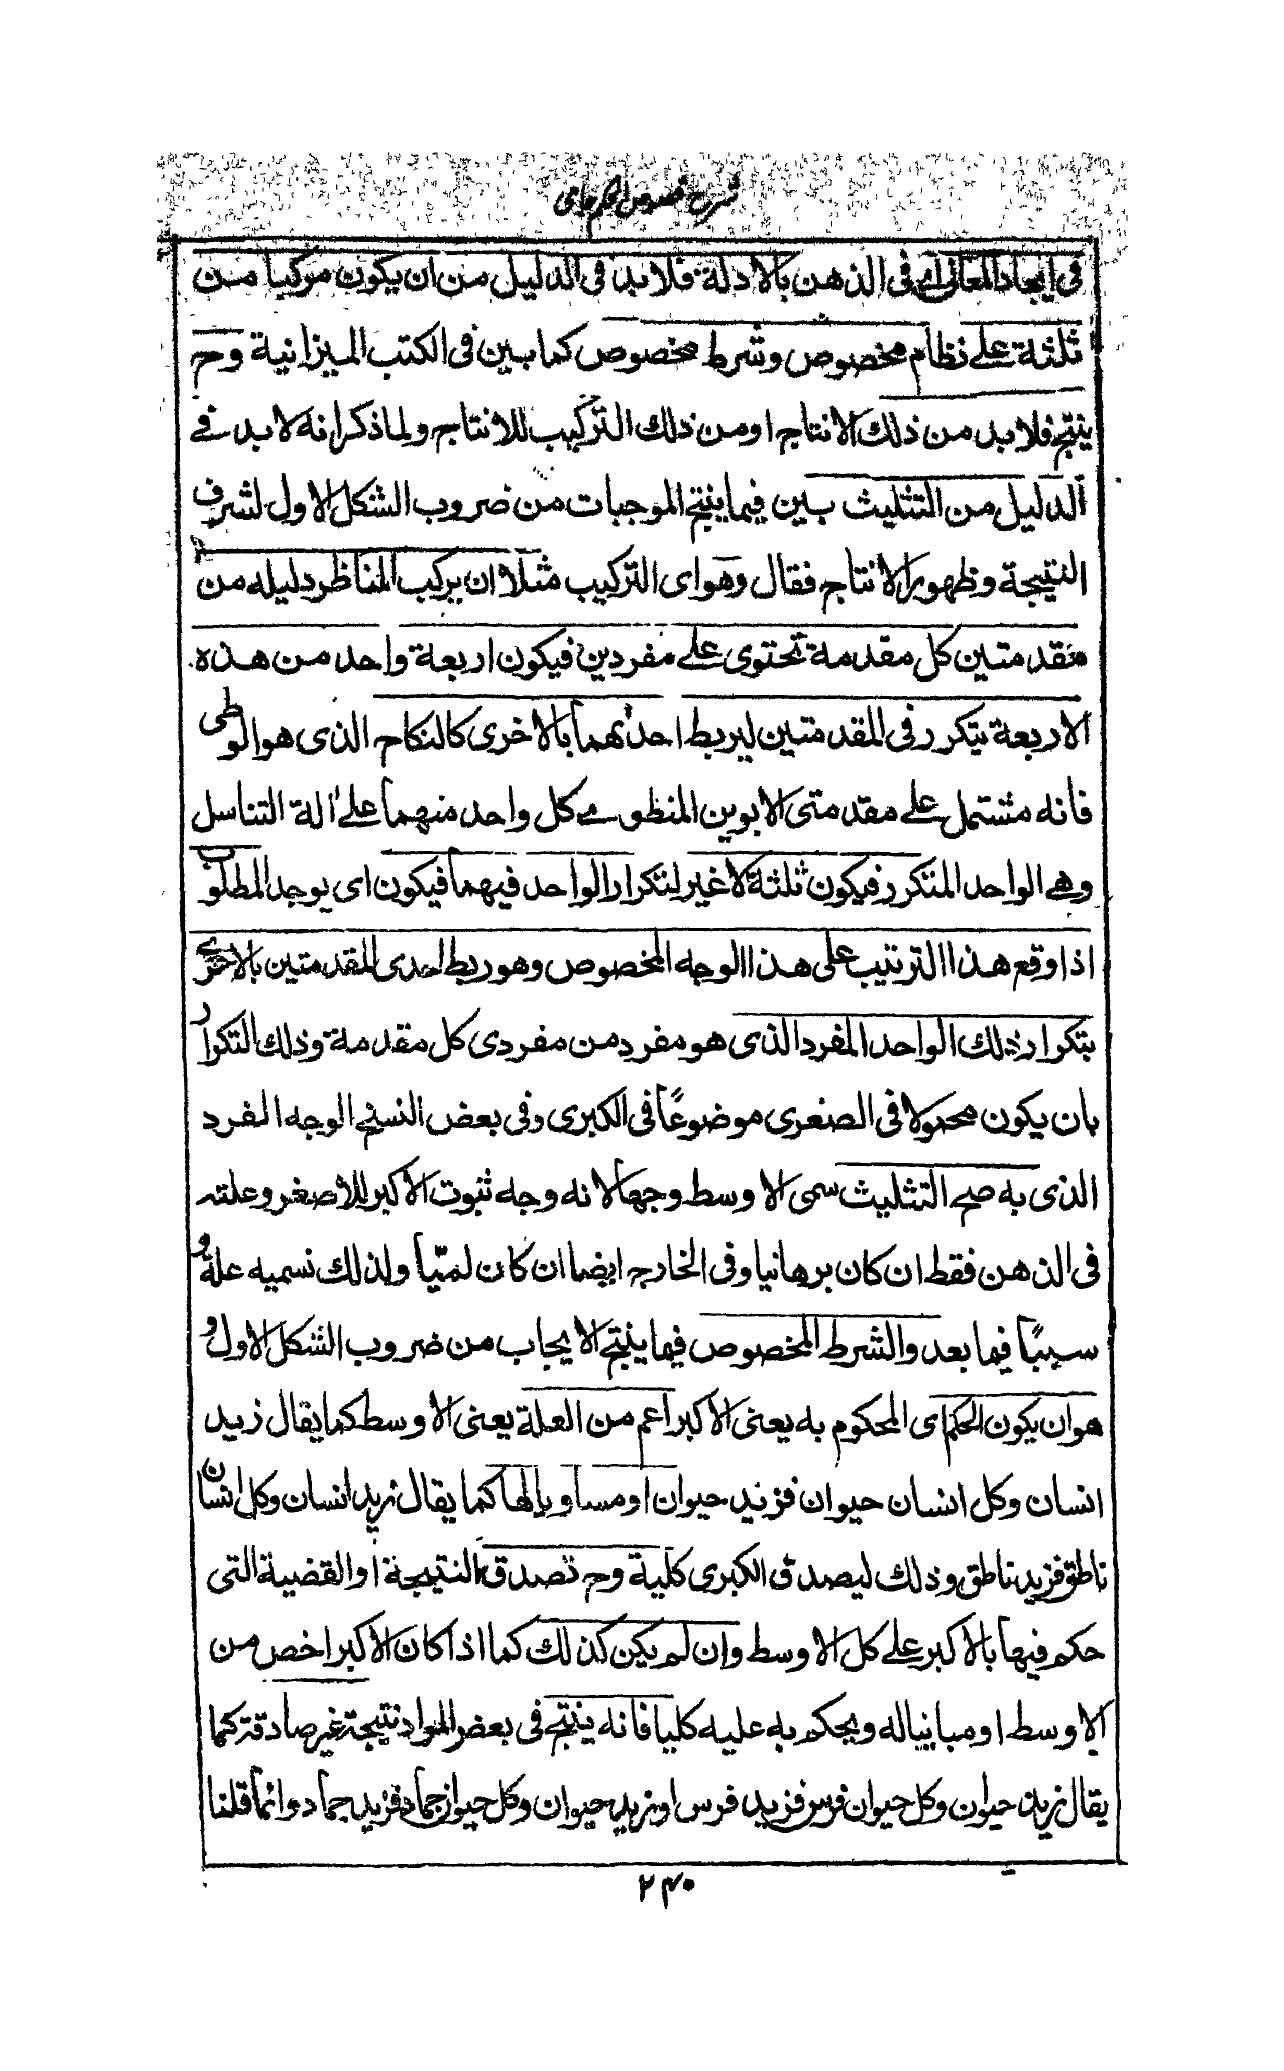 شرح فصوص الحكم جامى
فى ايجاد المعانى اى فى الذهن بالادلة فلا بد فى الدليل من ان يكون مركبا من
ثلثة على نظام مخصوص وشرط مخصوص كما بين فى الكتب الميزانية وح
ينتج فلا بد من ذلك الانتاج او من ذلك التركيب للانتاج ولما ذكر انه لا بد فى
الدليل من التثليث بين فيما ينتج الموجبات من ضروب الشكل الاول لشرف
النتيجة وظهور الانتاج فقال وهو اى التركيب مثلا ان يركب الناظر دليله من
مقدمتين كل مقدمة تحتوى على مفردين فيكون اربعة واحد من هذه
الاربعة يتكرر فى المقدمتين ليربط احدٰهما بالاخرى كالنكاح الذى هو الوطى
فانه مشتمل على مقدمتى الابوين المنظوى كل واحد منهما على اٰلة التناسل
وهى الواحد المتكرر فيكون ثلثة لا غير لتكرار الواحد فيهما فيكون اى يوجد المطلوب
اذا وقع هذا الترتيب على هذا الوجه المخصوص وهو ربط احدى المقدمتين بالاخرى
بتكرار ذلك الواحد المفرد الذى هو مفرد من مفردى كل مقدمة وذلك التكرار
بان يكون محمولا فى الصغرى موضوعًا فى الكبرى وفى بعض النسخ الوجه المفرد
الذى به صح التثليث سمى الاوسط وجها لانه وجه ثبوت الاكبر للاصغر وعلته
فى الذهن فقط ان كان برهانيا وفى الخارج ايضا ان كان لمّيّا ولذلك نسميه علة و
سببًا فيما بعد والشرط المخصوص فيما ينتج الايجاب من ضروب الشكل الاول و
هو ان يكون الحكم اى المحكوم به يعنى الاكبر اعم من العلة يعنى الاوسط كما يقال زيد
انسان وكل انسان حيوان فزيد حيوان او مساويا لها كما يقال زيد انسان وكل انسان
ناطق فزيد ناطق وذلك ليصدق الكبرى كلية وح تصدق النتيجة او القضية التى
حكم فيها بالاكبر على كل الاوسط وان لم يكن كذلك كما اذا كان الاكبر اخص من
الاوسط او مباينا له ويحكم به عليه كليا فانه ينتج فى بعض المواد نتيجة غير صادقة كما
يقال زيد حيوان وكل حيوان فرس فزيد فرس او زيد حيوان وكل حيوان جماد فزيد جماد وانما قلنا
۲۴۰